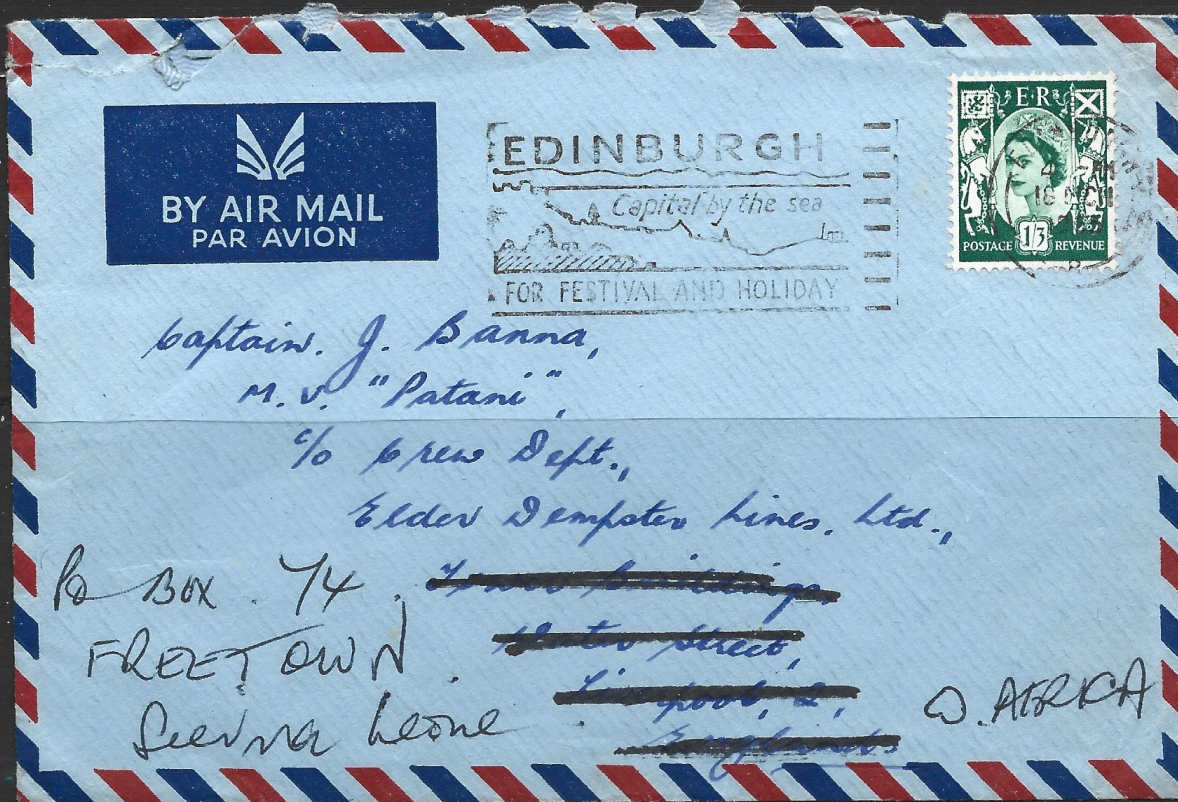 BY AIR MAIL
PAR AVION
EDINBURGH
Capital by the sea
FOR FESTIVAL AND HOLIDAY
E R
POSTAGE 1/3 REVENUE
Captain. J. Banna,
M. V. "Patani",
c/o Crew Dept.,
Elder Dempster Lines. Ltd.,
Water Street,
Liverpool, 2,
England.
Po Box. 74.
FREETOWN.
Sierra Leone.
W. AFRICA